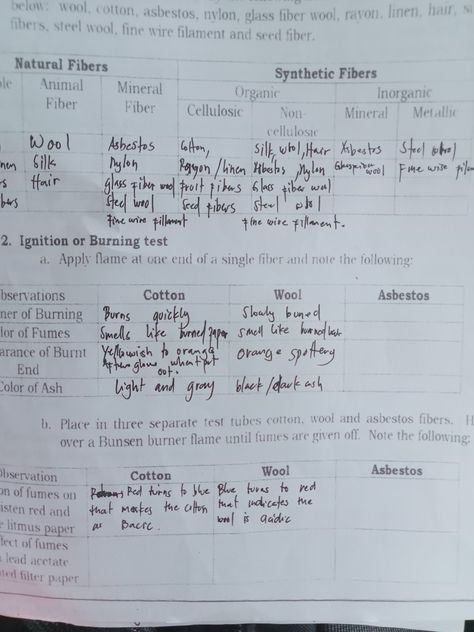 below: wool, cotton, asbestos, nylon, glass fiber wool, rayon, linen, hair,
fibers, steel wool, fine wire filament and seed fiber.
Natural Fibers Synthetic Fibers
Animal Fiber Mineral Fiber Organic Inorganic
Cellulosic Non-cellulosic Mineral Metallic
Wool Asbestos Cotton, Silk, wool, Hair Steel wool
Silk Nylon linen Nylon wool Fine wire
Hair glass fiber wool fruit fibers Glass fiber wool
Steel wool Seed fibers Steel wool
Fine wire fillament Fine wire fillament.
2. Ignition or Burning test
a. Apply flame at one end of a single fiber and note the following:
bservations Cotton Wool Asbestos
ner of Burning Burns quickly Slowly buned
lor of Fumes Smells like burned paper smell like burned hair
arance of Burnt End Yellowish to orange Afterglow when put out. orange
Color of Ash light and gray black/dark ash
b. Place in three separate test tubes cotton, wool and asbestos fibers. H
over a Bunsen burner flame until fumes are given off. Note the following:
Observation Cotton Wool Asbestos
on of fumes on Red turns to blue Blue turns to red
isten red and that makes the cotton that indicates the
litmus paper as Basic. wool is acidic
fect of fumes
lead acetate
ted filter paper